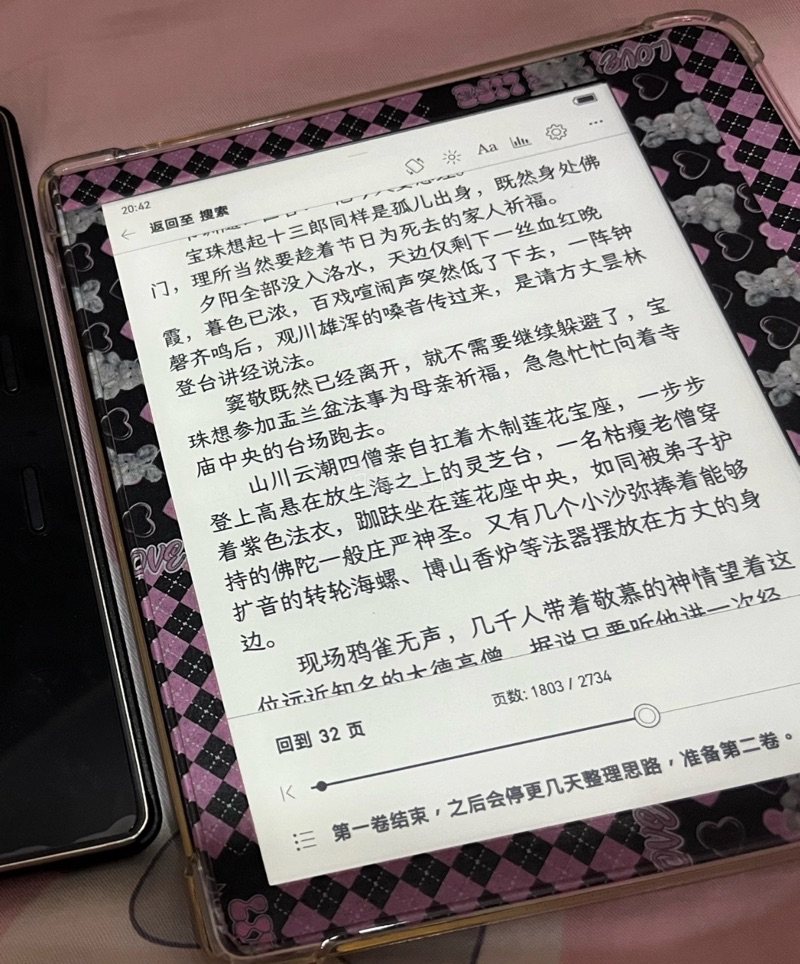 LIFE
LOVE
20:42
Aa
返回至 搜索
宝珠想起十三郎同样是孤儿出身，既然身处佛
门，理所当然要趁着节日为死去的家人祈福。
夕阳全部没入洛水，天边仅剩下一丝血红晚
霞，暮色已浓，百戏喧闹声突然低了下去，一阵钟
磬齐鸣后，观川雄浑的嗓音传过来，是请方丈昙林
登台讲经说法。
窦敬既然已经离开，就不需要继续躲避了，宝
珠想参加盂兰盆法事为母亲祈福，急急忙忙向着寺
庙中央的台场跑去。
山川云潮四僧亲自扛着木制莲花宝座，一步步
登上高悬在放生海之上的灵芝台，一名枯瘦老僧穿
着紫色法衣，跏趺坐在莲花座中央，如同被弟子护
持的佛陀一般庄严神圣。又有几个小沙弥捧着能够
扩音的转轮海螺、博山香炉等法器摆放在方丈的身
边。
现场鸦雀无声，几千人带着敬慕的神情望着这
位远近知名的大德高僧，据说只要听他讲一次经
页数: 1803 / 2734
回到 32 页
第一卷结束，之后会停更几天整理思路，准备第二卷。